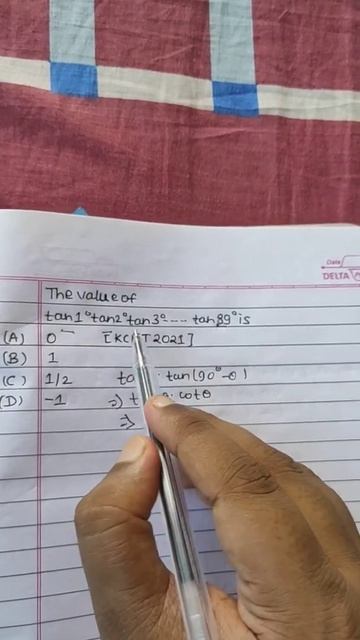 Date
DELTA
The value of
tan1° tan2° tan3° --- tan89° is
(A) 0 [KC T 2021]
(B) 1
(C) 1/2 tan(90°-θ)
(D) -1 => cotθ
=>